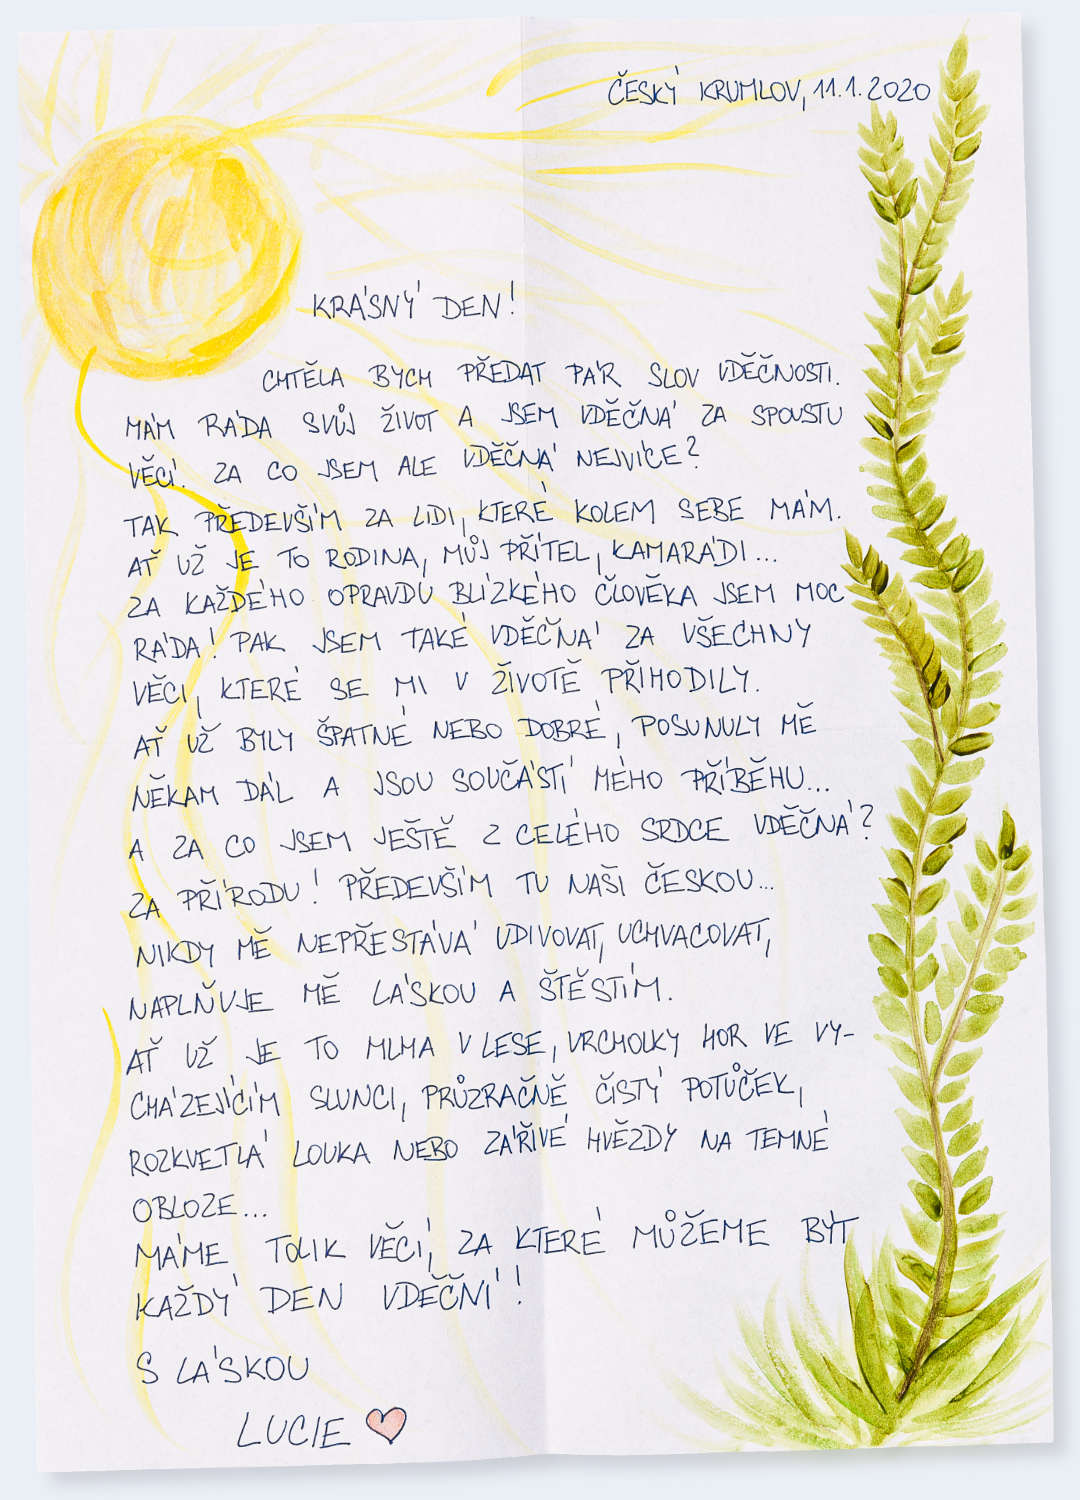 ČESKÝ KRUMLOV, 11.1.2020
KRÁSNÝ DEN!
CHTĚLA BYCH PŘEDAT PÁR SLOV VDĚČNOSTI.
MÁM RÁDA SVŮJ ŽIVOT A JSEM VDĚČNÁ ZA SPOUSTU
VĚCÍ. ZA CO JSEM ALE VDĚČNÁ NEJVÍCE?
TAK PŘEDEVŠÍM ZA LIDI, KTERÉ KOLEM SEBE MÁM.
AŤ UŽ JE TO RODINA, MŮJ PŘÍTEL, KAMARÁDI...
ZA KAŽDÉHO OPRAVDU BLÍZKÉHO ČLOVĚKA JSEM MOC
RÁDA! PAK JSEM TAKÉ VDĚČNÁ ZA VŠECHNY
VĚCI, KTERÉ SE MI V ŽIVOTĚ PŘIHODILY.
AŤ UŽ BYLY ŠPATNÉ NEBO DOBRÉ, POSUNULY MĚ
NĚKAM DÁL A JSOU SOUČÁSTÍ MÉHO PŘÍBĚHU...
A ZA CO JSEM JEŠTĚ Z CELÉHO SRDCE VDĚČNÁ?
ZA PŘÍRODU! PŘEDEVŠÍM TU NAŠI ČESKOU...
NIKDY MĚ NEPŘESTÁVÁ UDIVOVAT, UCHVACOVAT,
NAPLŇUJE MĚ LÁSKOU A ŠTĚSTÍM.
AŤ UŽ JE TO MLHA V LESE, VRCHOLKY HOR VE VY-
CHÁZEJÍCÍM SLUNCI, PRŮZRAČNĚ ČISTÝ POTŮČEK,
ROZKVETLÁ LOUKA NEBO ZÁŘIVÉ HVĚZDY NA TEMNÉ
OBLOZE...
MÁME TOLIK VĚCÍ, ZA KTERÉ MŮŽEME BÝT
KAŽDÝ DEN VDĚČNÍ!
S LÁSKOU
LUCIE